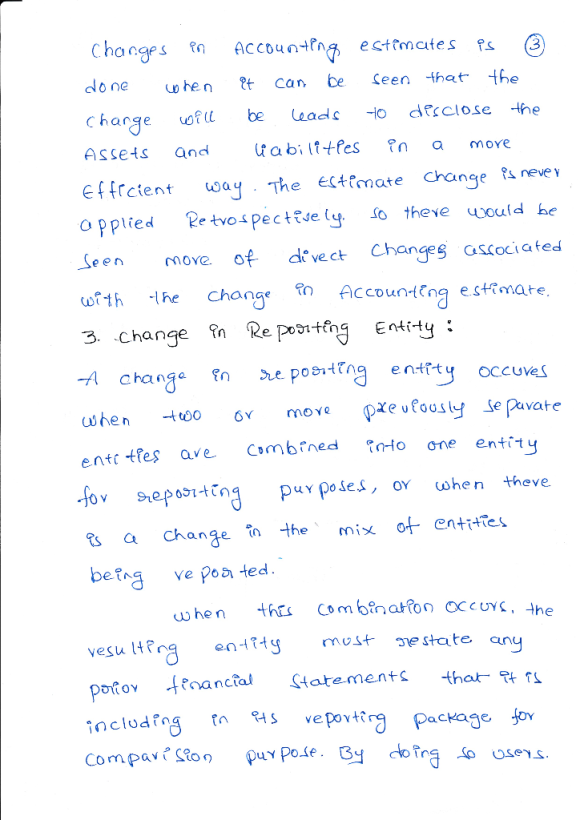 Changes in Accounting estimates is ③
done when it can be seen that the
change will be leads to disclose the
Assets and liabilities in a more
Efficient way. The Estimate change is never
applied Retrospectively. so there would be
seen more of direct Changes associated
with the change in Accounting estimate.
3. change in Reporting Entity :
A change in reporting entity occures
when two or more previously separate
entities are combined into one entity
for reporting purposes, or when there
is a change in the mix of entities
being reported.
when this combination occurs, the
resulting entity must restate any
prior financial Statements that it is
including in its reporting package for
comparision purpose. By doing so users.